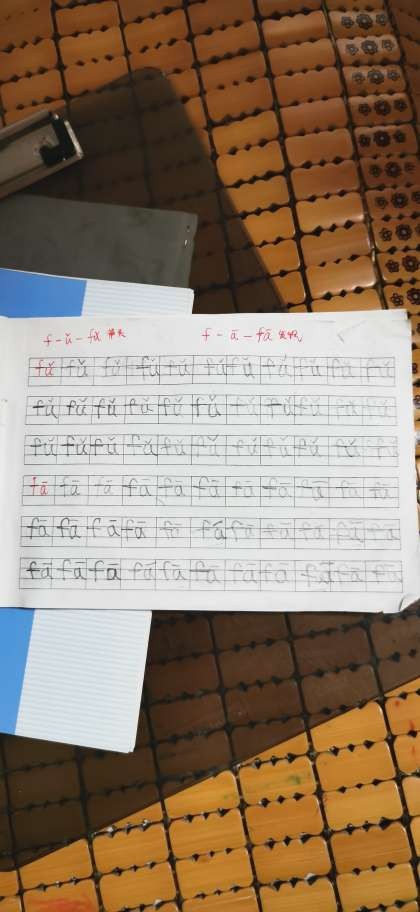 f - ǔ - fǔ 斧头 f - ā - fā
fǔ fǔ fǔ fǔ fǔ fǔ fǔ fǔ fǔ fǔ fǔ
fǔ fǔ fǔ fǔ fǔ fǔ fǔ fǔ fǔ fǔ fǔ
fǔ fǔ fǔ fǔ fǔ fǔ fǔ fǔ fǔ fǔ fǔ
fā fā fā fā fā fā fā fā fā fā fā
fā fā fā fā fā fā fā fā fā fā fā
fā fā fā fā fā fā fā fā fā fā fā